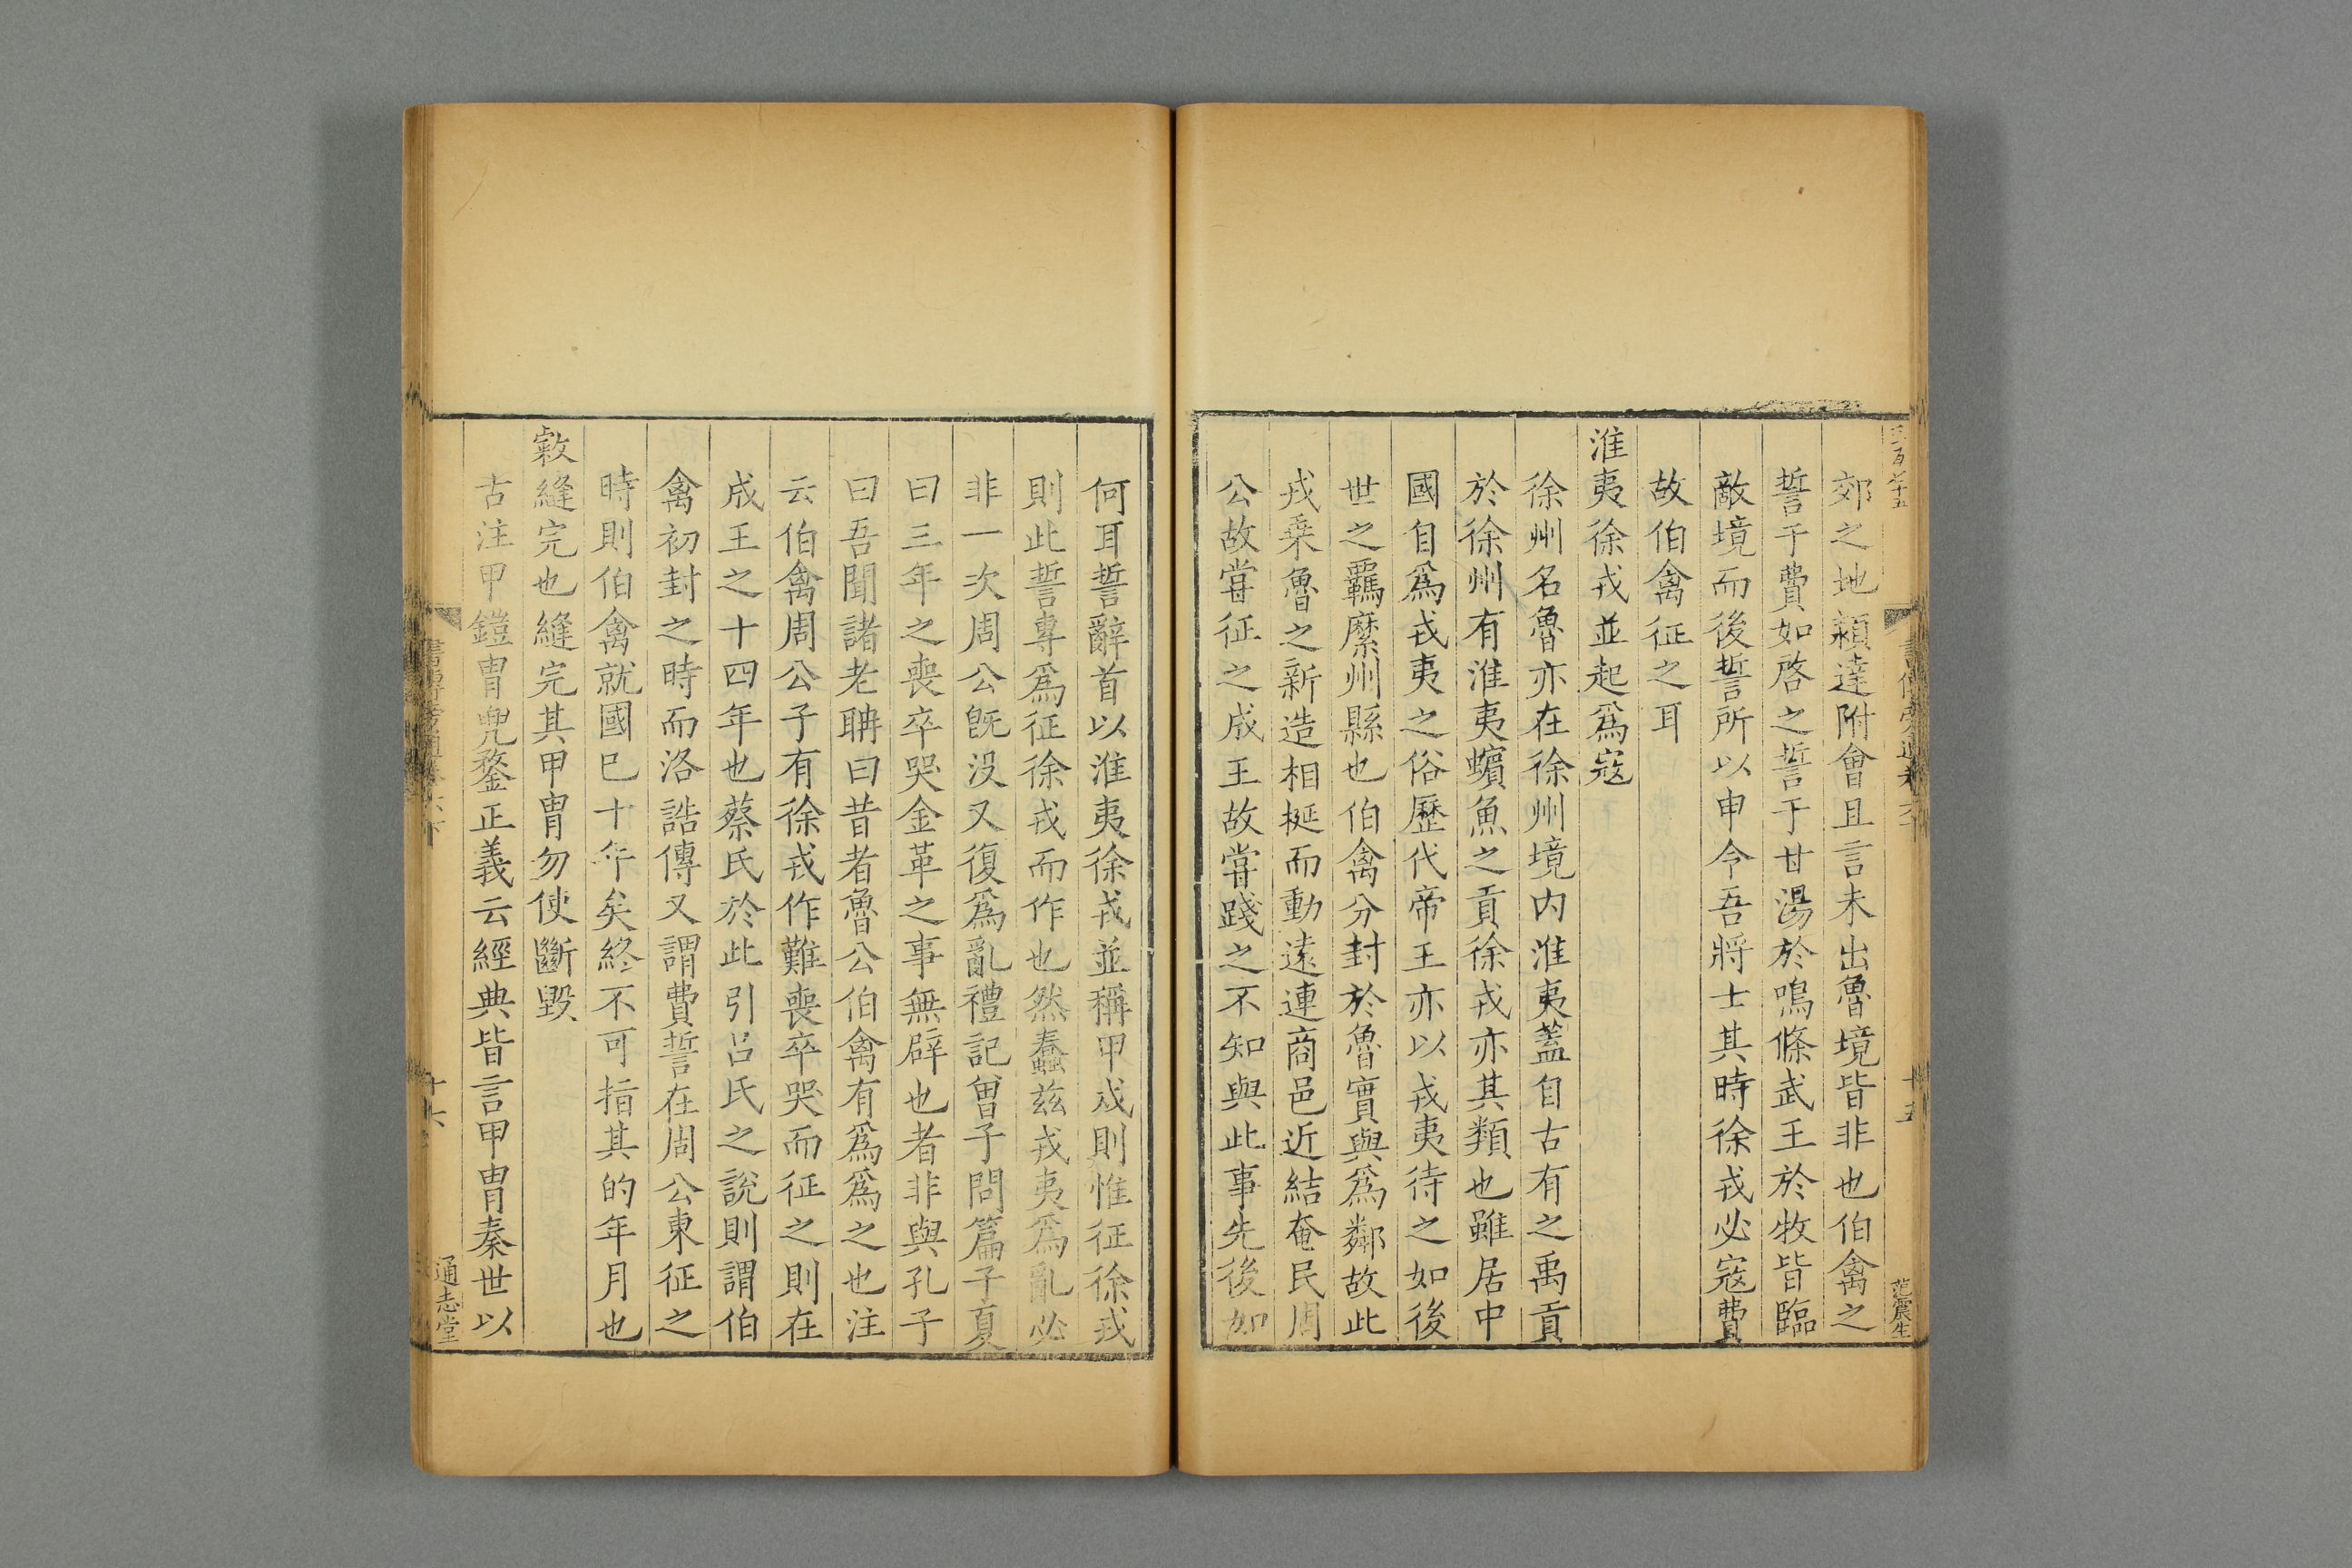 郊之地穎達附會且言未出魯境皆非也伯禽之
誓于費如啓之誓于甘湯於鳴條武王於牧皆臨
敵境而後誓所以申令吾將士其時徐戎必寇費
故伯禽征之耳
淮夷徐戎並起爲寇
徐州名魯亦在徐州境内淮夷蓋自古有之禹貢
於徐州有淮夷蠙魚之貢徐戎亦其類也雖居中
國自爲戎夷之俗歷代帝王亦以戎夷待之如後
世之羈縻州縣也伯禽分封於魯實與爲鄰故此
戎乗魯之新造相挻而動遠連商邑近結奄民周
公故嘗征之成王故嘗踐之不知與此事先後如
何耳誓辭首以淮夷徐戎並稱甲戍則惟征徐戎
則此誓專爲征徐戎而作也然蠢兹戎夷爲亂必
非一次周公旣没又復爲亂禮記曾子問篇子夏
曰三年之喪卒哭金革之事無辟也者非與孔子
曰吾聞諸老聃曰昔者魯公伯禽有爲爲之也注
云伯禽周公子有徐戎作難喪卒哭而征之則在
成王之十四年也蔡氏於此引吕氏之說則謂伯
禽初封之時而洛誥傳又謂費誓在周公東征之
時則伯禽就國已十年矣終不可指其的年月也
敹縫完也縫完其甲胄勿使斷毀
古注甲鎧胄兜鍪正義云經典皆言甲胄秦世以
范震生
十五
十六
通志堂